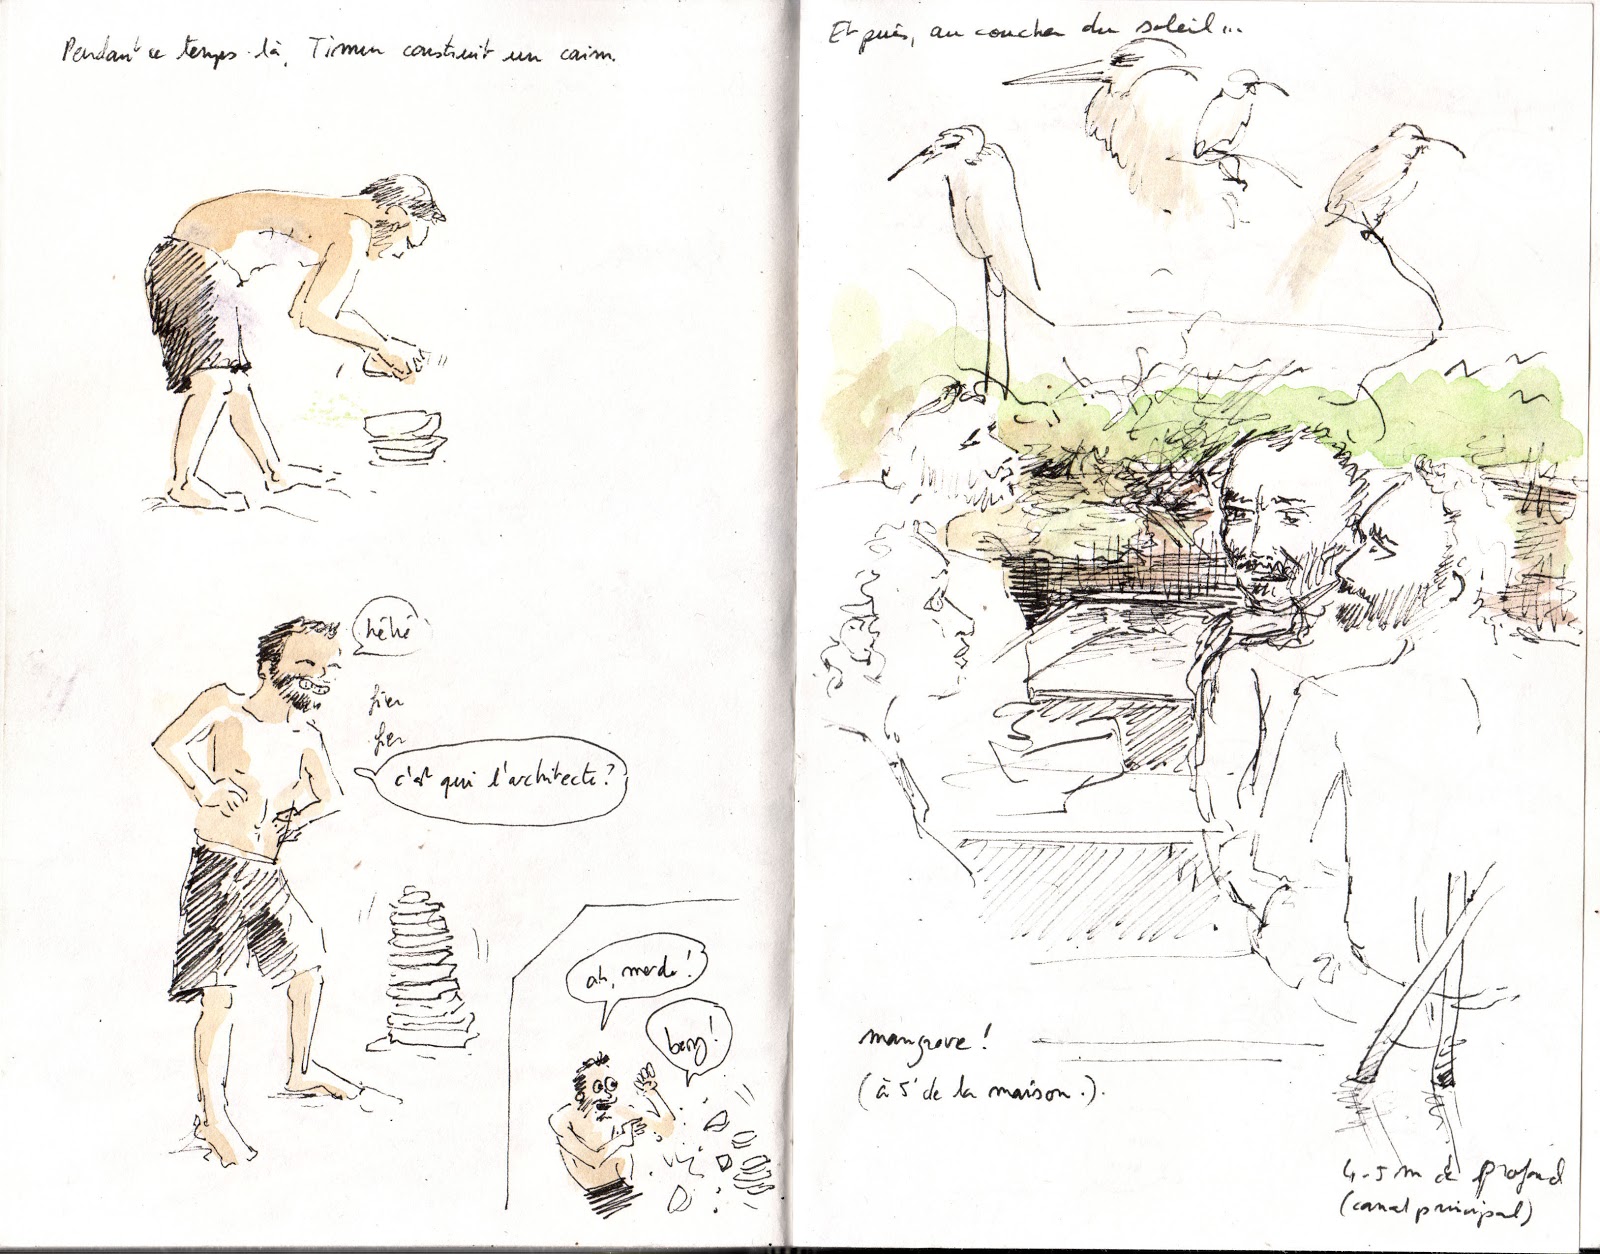 Pendant ce temps-là, Timun construit un cairn.
héhé
fier
fier
c'est qui l'architecte?
ah, merde!
beng!
Et puis, au coucher du soleil...
mangrove!
(à 5' de la maison.).
4-5 m de profond
(canal principal)